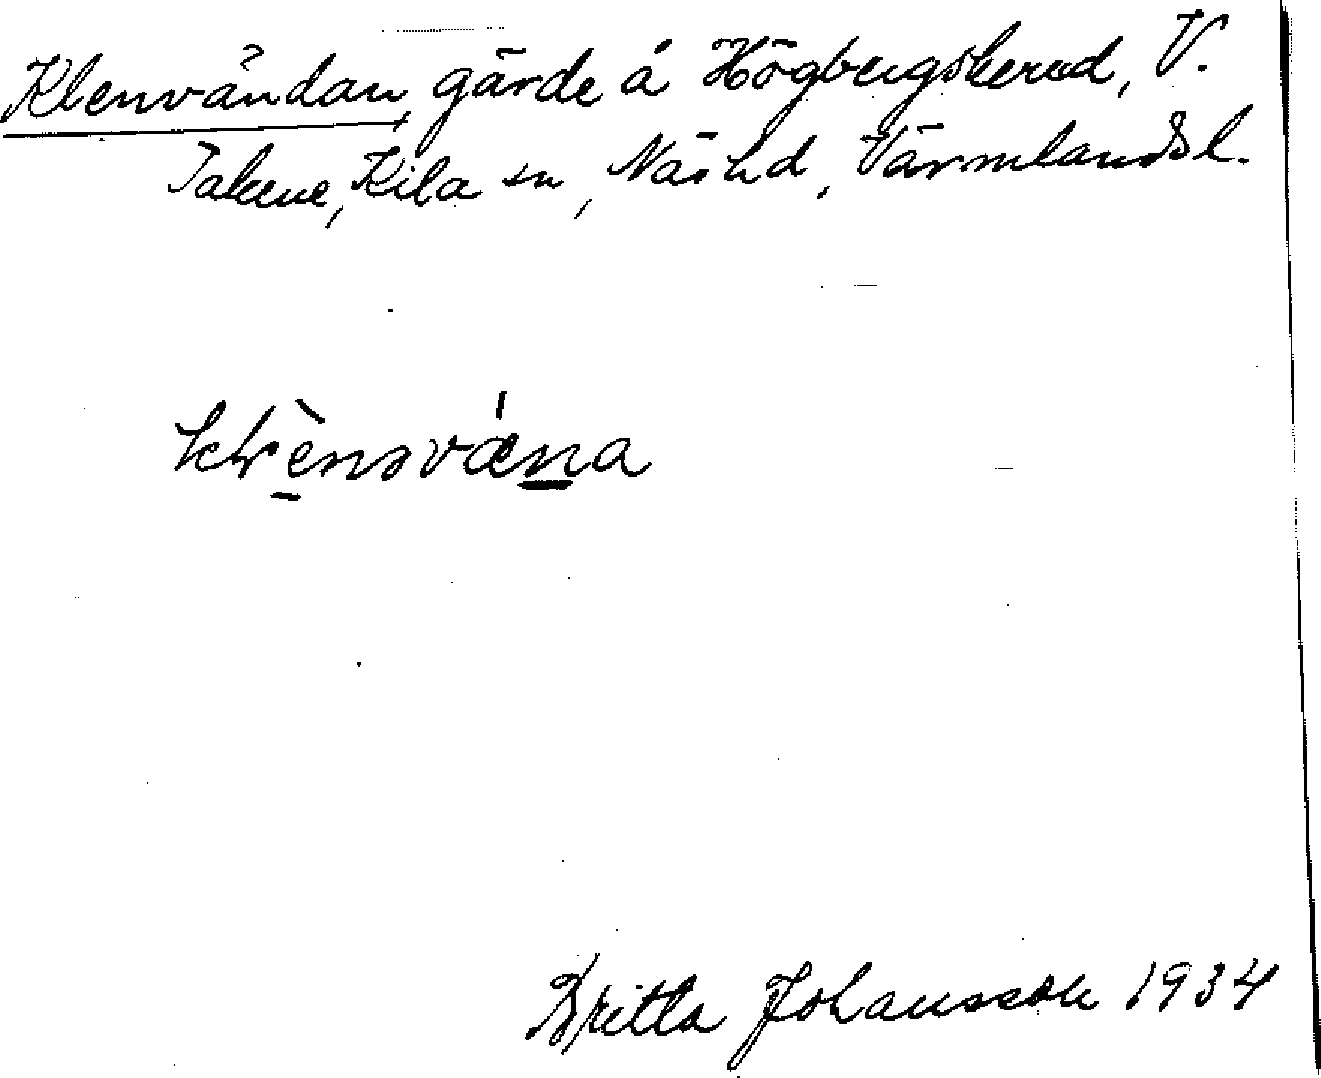 Klenvändan, gärde å Högbergskerud, V.
Takene, Kila sn, Näs hd, Värmlands l.
Britta Johansson 1934